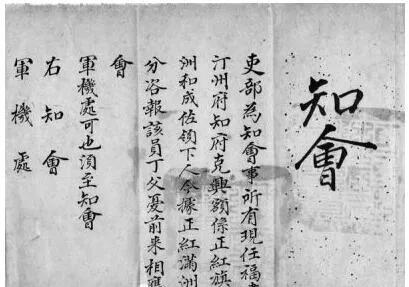 知會
吏部為知會事所有現任福建
汀州府知府克興額係正紅旗
洲和成佐領下人今據正紅滿洲
分咨報該員丁父憂前來相應
會
軍機處可也須至知會
右知會
軍機處